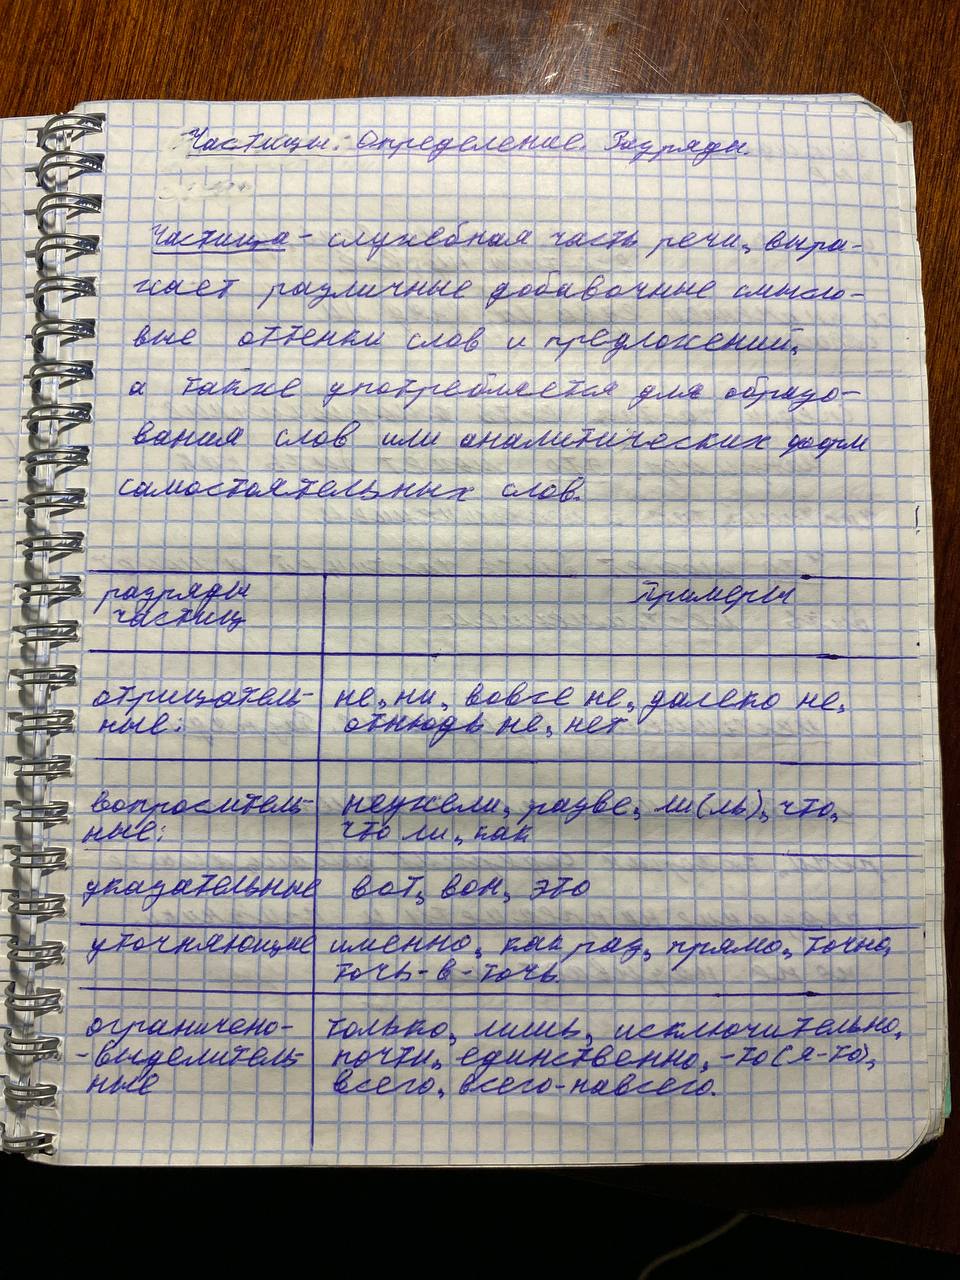 Частицы. Определение. Разряды.
Частица - служебная часть речи, выра-
жает различные добавочные смысло-
вые оттенки слов и предложений,
а также употребляется для образо-
вания слов или аналитических форм
самостоятельных слов.
разряды Примеры
частиц
отрицатель- не, ни, вовсе не, далеко не,
ные: отнюдь не, нет
вопроситель- неужели, разве, ли(ль), что,
ные: что ли, как
указательные вот, вон, это
уточняющие именно, как раз, прямо, точно,
точь-в-точь.
ограничено- только, лишь, исключительно,
-выделитель- почти, единственно, -то(я-то),
ные всего, всего-навсего.